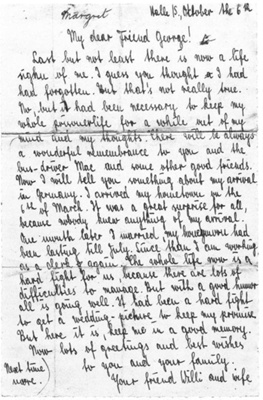 Margret
Halle S, October the 6th
My dear Friend George!
Last but not least there is now a life
sighn of me. I guess you thought I had
had forgotten. But that's not really true.
No, but it had been necessary to keep my
whole prisonerlife for a while out of my
mind and my thoughts. There will be always
a wonderful remembrance to you and the
bus-driver Mac and some other good friends.
Now I will tell you something about my arrival
in Germany. I arrived my hometown on the
6th of March. It was a great surprise for all,
because nobody knew anything of my arrival.
One month later I married, my honeymoon had
been lasting till July. Since than I am working
as a clerk again. The whole life now is a
hard fight for us, because there are lots of
difficulties to manage. But with a good humor
all is going well. It had been a hard fight
to get a wedding-picture to keep my promise
But here it is, keep me in a good memory.
Now lots of greetings and best wishes
to you and your family.
Next time
more.
Your friend Willi and wife